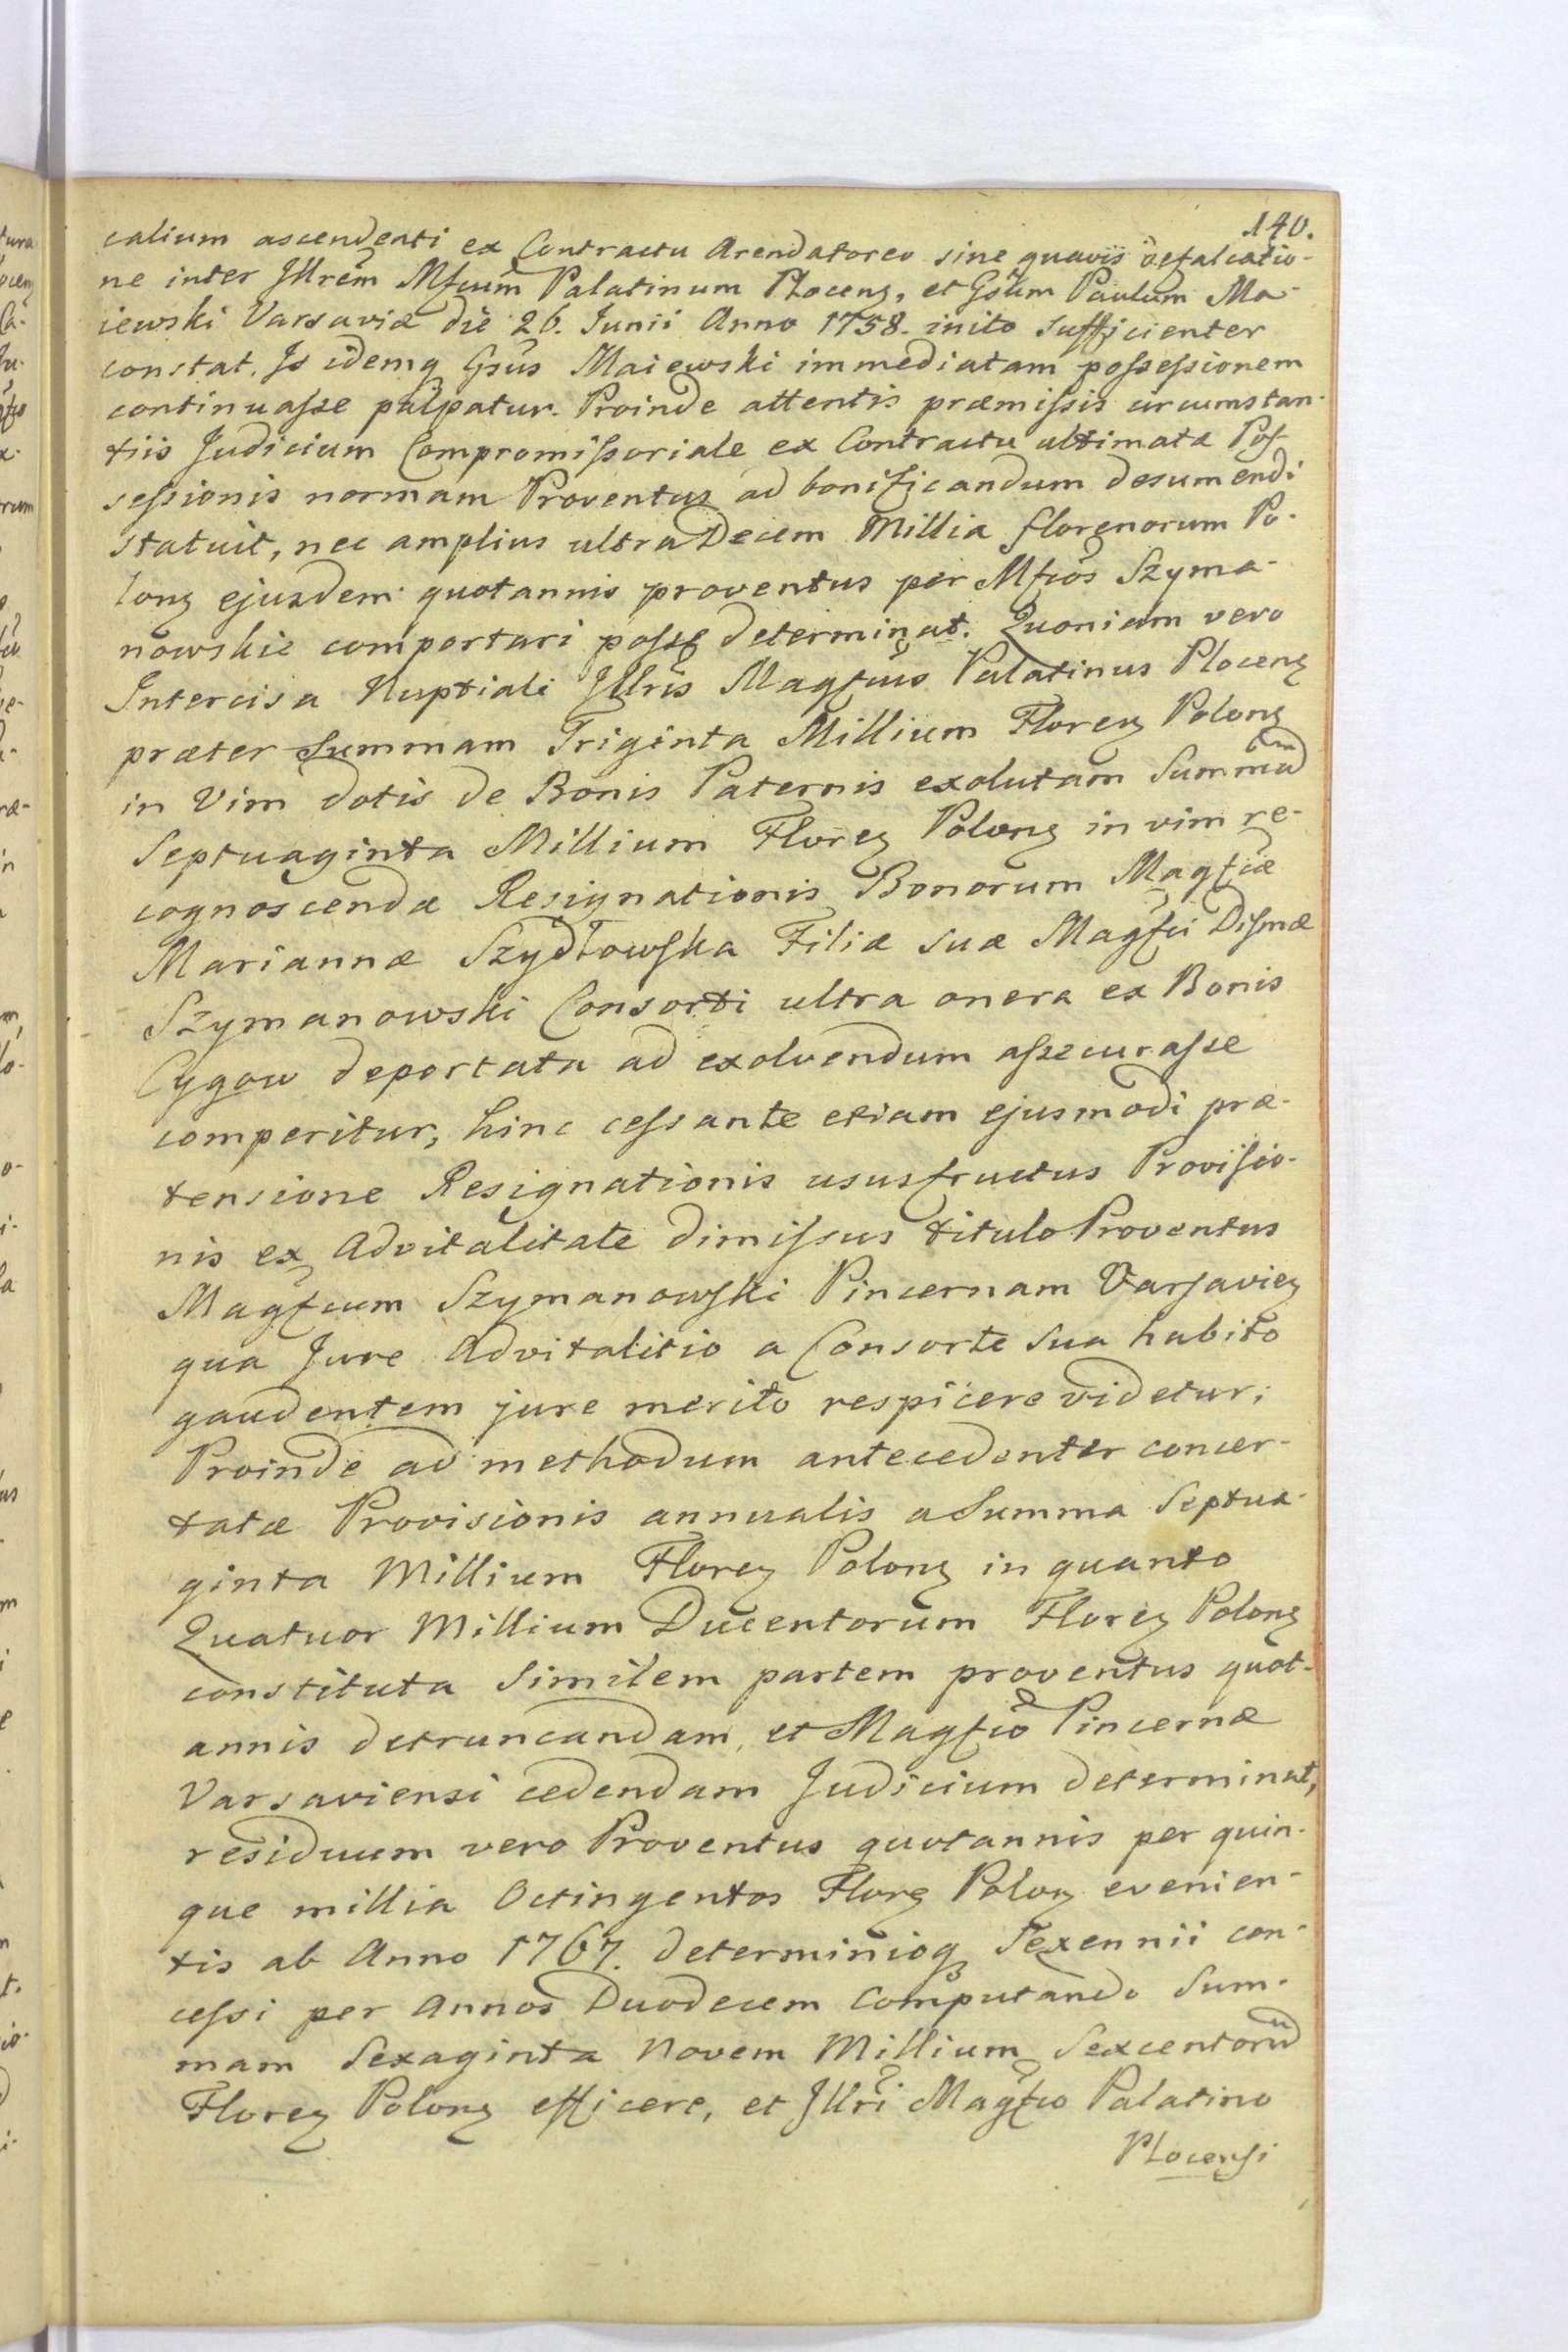 140.
calium ascendenti ex Contractu Arendatoreo sine quavis defalcatio-
ne inter Jllrem Mfcum Palatinum Plocenż, et Gsum Paulum Ma-
iewski Varsaviæ die 26. Junii Anno 1758. inito sufficienter
constat. Js idemq Gsus Maiewski immediatam poſseſsionem
continuaſse palpatur. Proinde attentis præmiſsis circumstan-
tiis Judicium Compromiſsoriale ex Contractu ultimatæ Poſ-
seſsionis normam Proventus ad bonificandum desumendi
statuit, nec amplius ultra Decem Millia florenorum Po-
lonż ejusdem quotannis proventus per Mfcos Szyma-
nowskie comportari poſse determinat. Quoniam vero
Intercisa Nuptiali Jllris Magfcus Palatinus Plocenż
præter Summam Triginta Millium Florenż Polonż
in Vim dotis de Bonis Paternis exolutam Summam
Septuaginta Millium Florenż Polonż in vim re-
cognoscendæ Resignationis Bonorum Magfcæ
Mariannæ Szydłowſka Filiæ suæ Magfci Diſmæ
Szymanowski Consorti ultra onera ex Bonis
Cygow deportata ad exolvendum aſsecuraſse
comperitur, hinc ceſsante etiam ejusmodi præ-
tensione Resignationis ususfructus Proviſio-
nis ex Advitalitate dimiſsus titulo Proventus
Magfcum Szymanowſki Pincernam Varſavienż
qua Jure Advitalitio a Consorte sua habito
gaudentem jure merito respicere videtur;
Proinde ad methodum antecedenter concer-
tatæ Provisionis annualis a Summa Septua-
ginta Millium Florenż Polonż in quanto
Quatuor Millium Ducentorum Florenż Polonż
constituta Similem partem proventus quot-
annis detruncandam, et Magfco Pincernæ
Varsaviensi cedendam Judicium determinat,
residuum vero Proventus quotannis per quin-
que millia Octingentos Florż Polonż evenien-
tis ab Anno 1767. determinioq Sexennii con-
ceſsi per Annos Duodecem Computando Sum-
mam Sexaginta Novem Millium Sexcentorum
Florenż Polonż efficere, et Jllri Magfco Palatino
Plocenſi